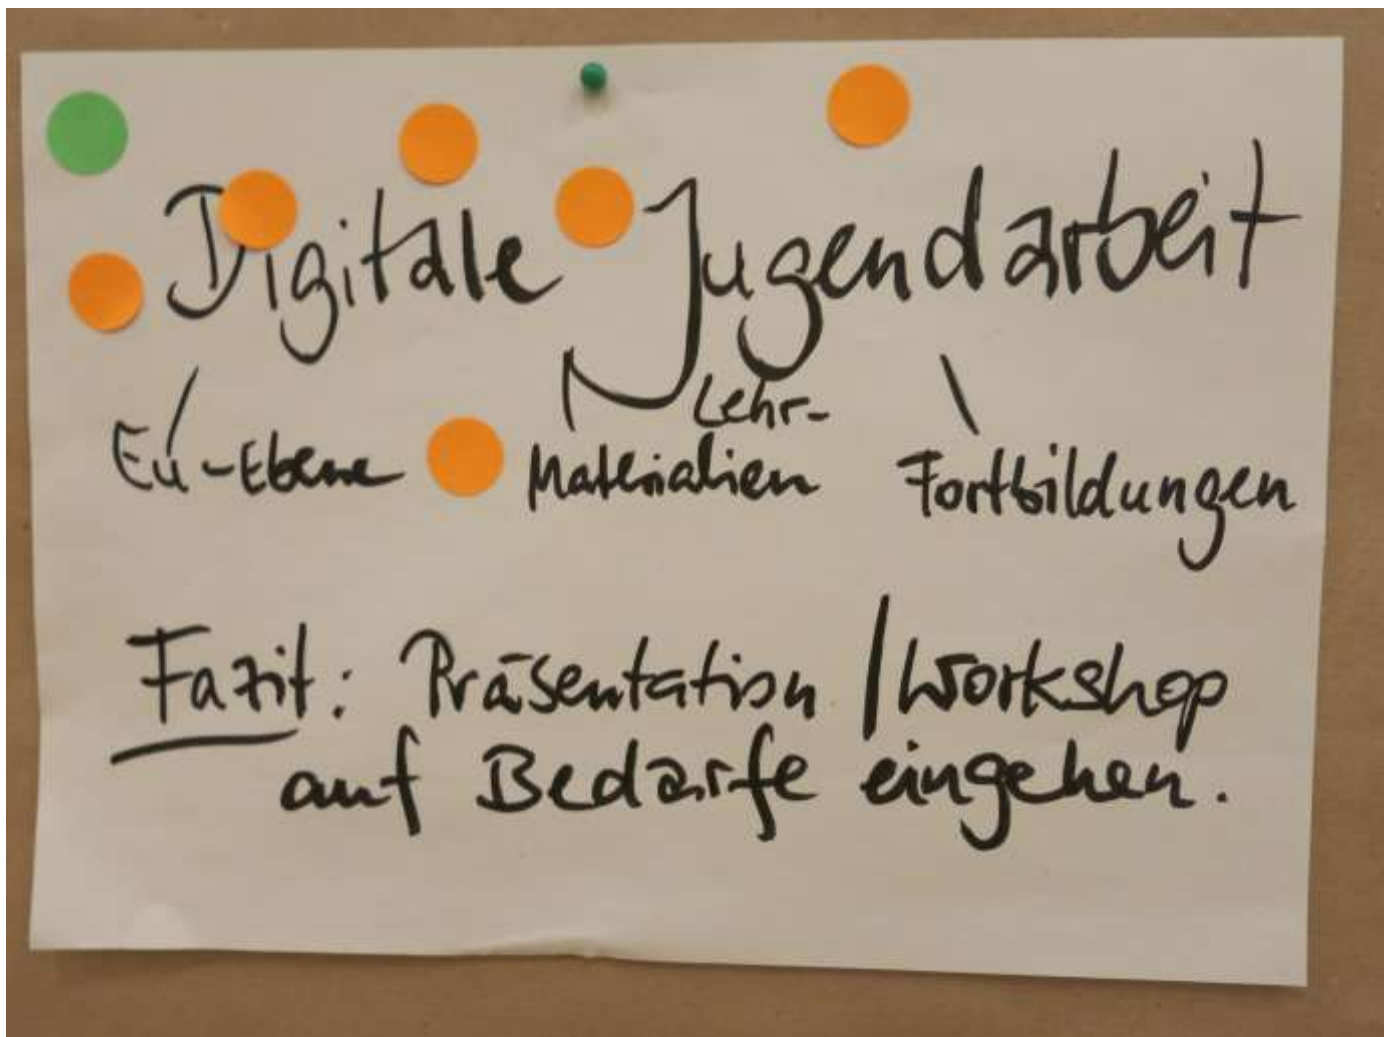 Digitale Jugendarbeit
EU-Ebene Lehr-Materialien Fortbildungen
Fazit: Präsentation / Workshop
auf Bedarfe eingehen.